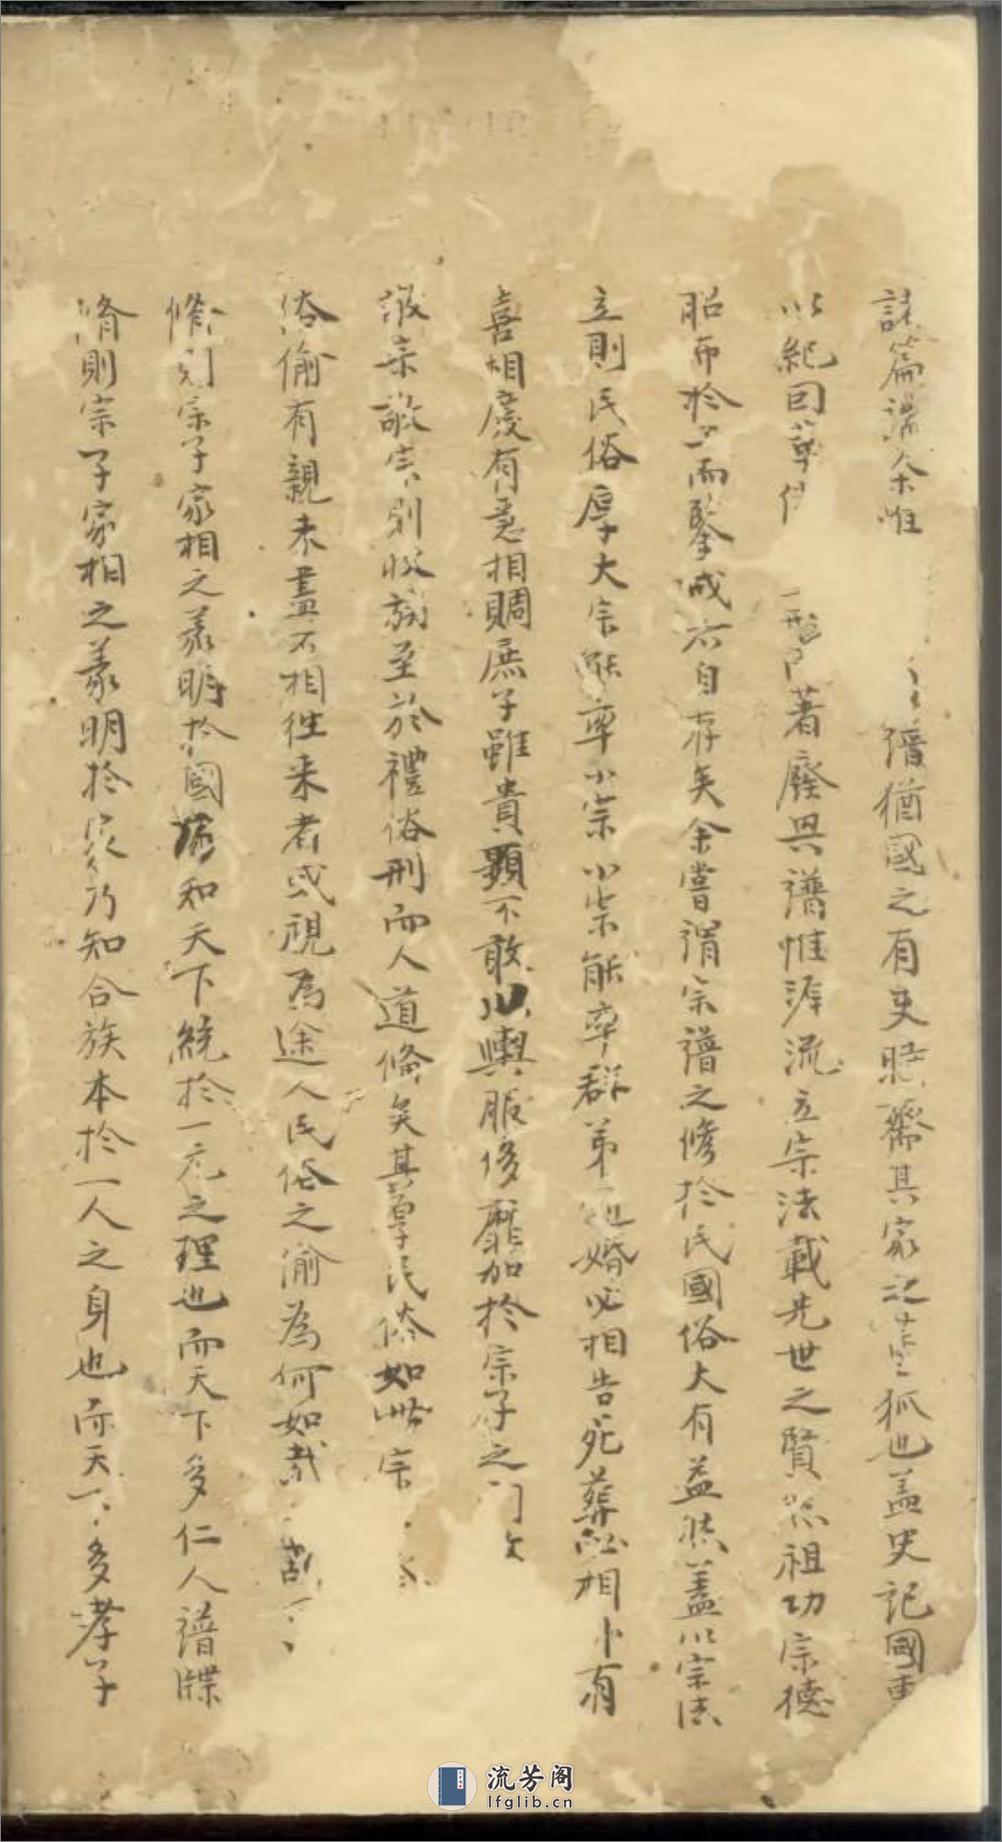 篇 余惟 譜猶國之有史 其家之 狐也盖史記國事
以紀 著廢興譜惟泝流立宗法載先世之賢 祖功宗德
昭而於 而鑒戒亦自存矣余嘗謂宗譜之修於民國俗大有益 盖以宗法
立則民俗厚大宗能率小宗小宗能率群弟 婚必相告死葬必相 有
喜相慶有急相賙庶子雖貴顯不敢以輿服侈靡加於宗子之門
宗敬宗則收族至於禮俗刑而人道備矣其厚民俗如此宗
俗偷有親未盡不相徃来者或視為途人民俗之渝為何如哉
脩則宗子家相之義明於國 和天下統於一元之理也而天下多仁人譜牒
脩則宗子家相之義明於家乃知合族本於一人之身也而天下多孝子
流芳阁
lfglib.cn